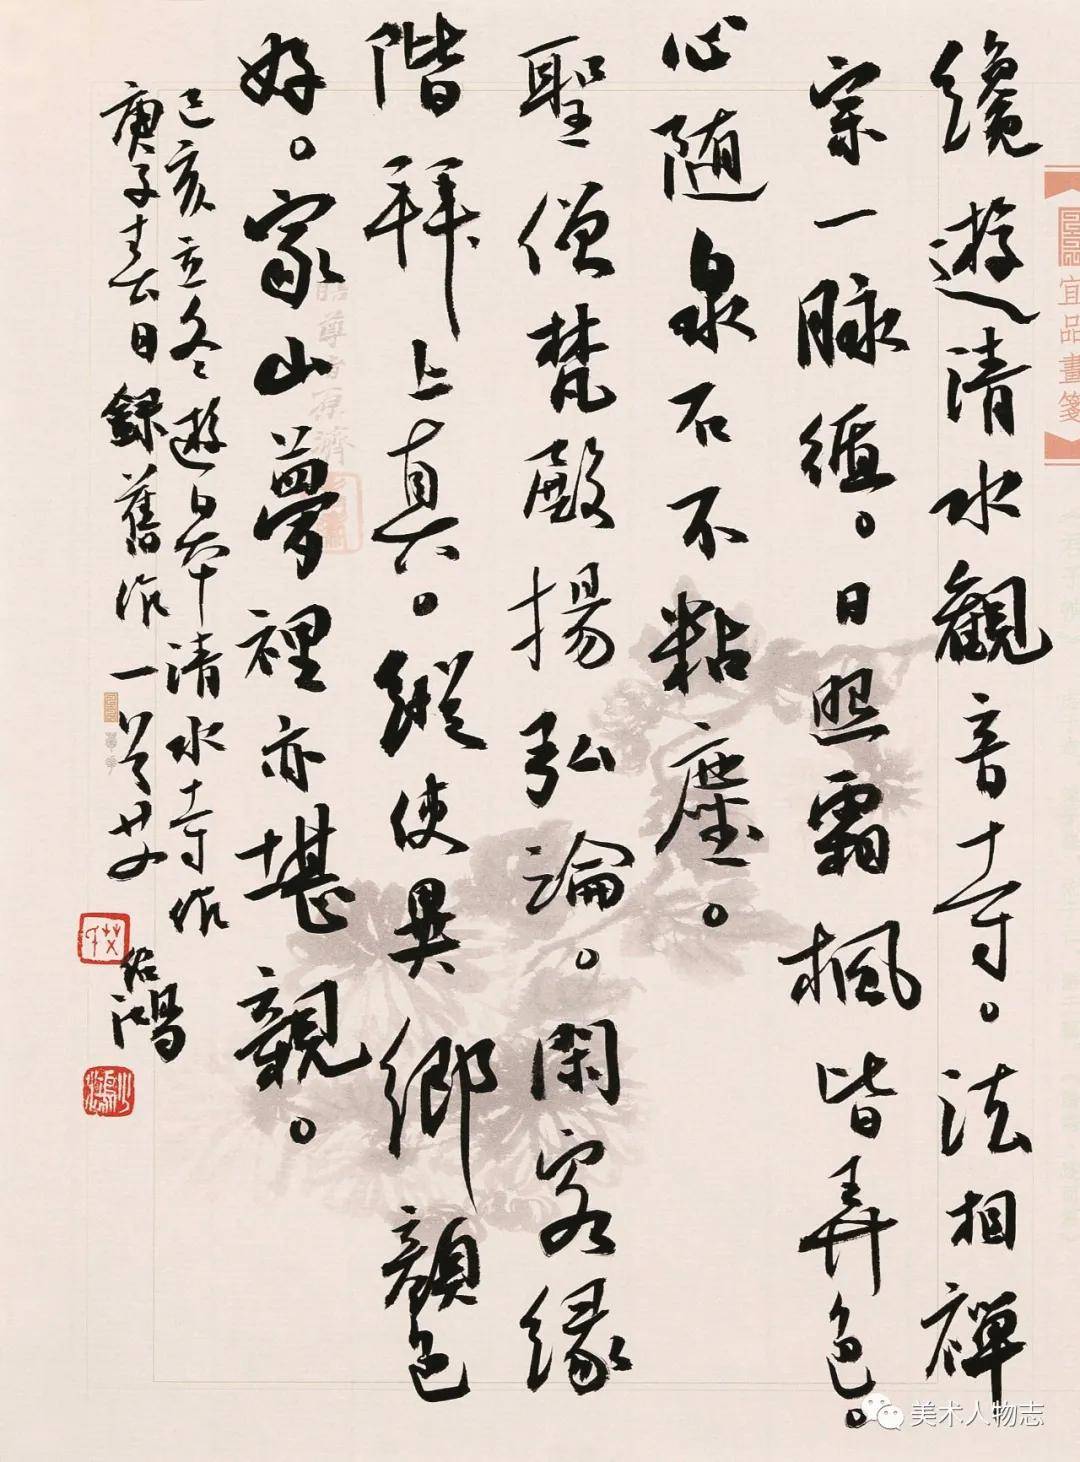 纔遊清水觀音寺。法相禪
宗一脉循。日照霜楓皆弄色。
心随泉石不粘塵。
聖僧梵殿揚弘論。閑客緣
階拜上真。縱使異鄉顏色
好。家山夢裡亦堪親。
己亥立冬遊日本清水寺作
庚子春日錄舊作
紹鴻
宜品畫箋
美术人物志